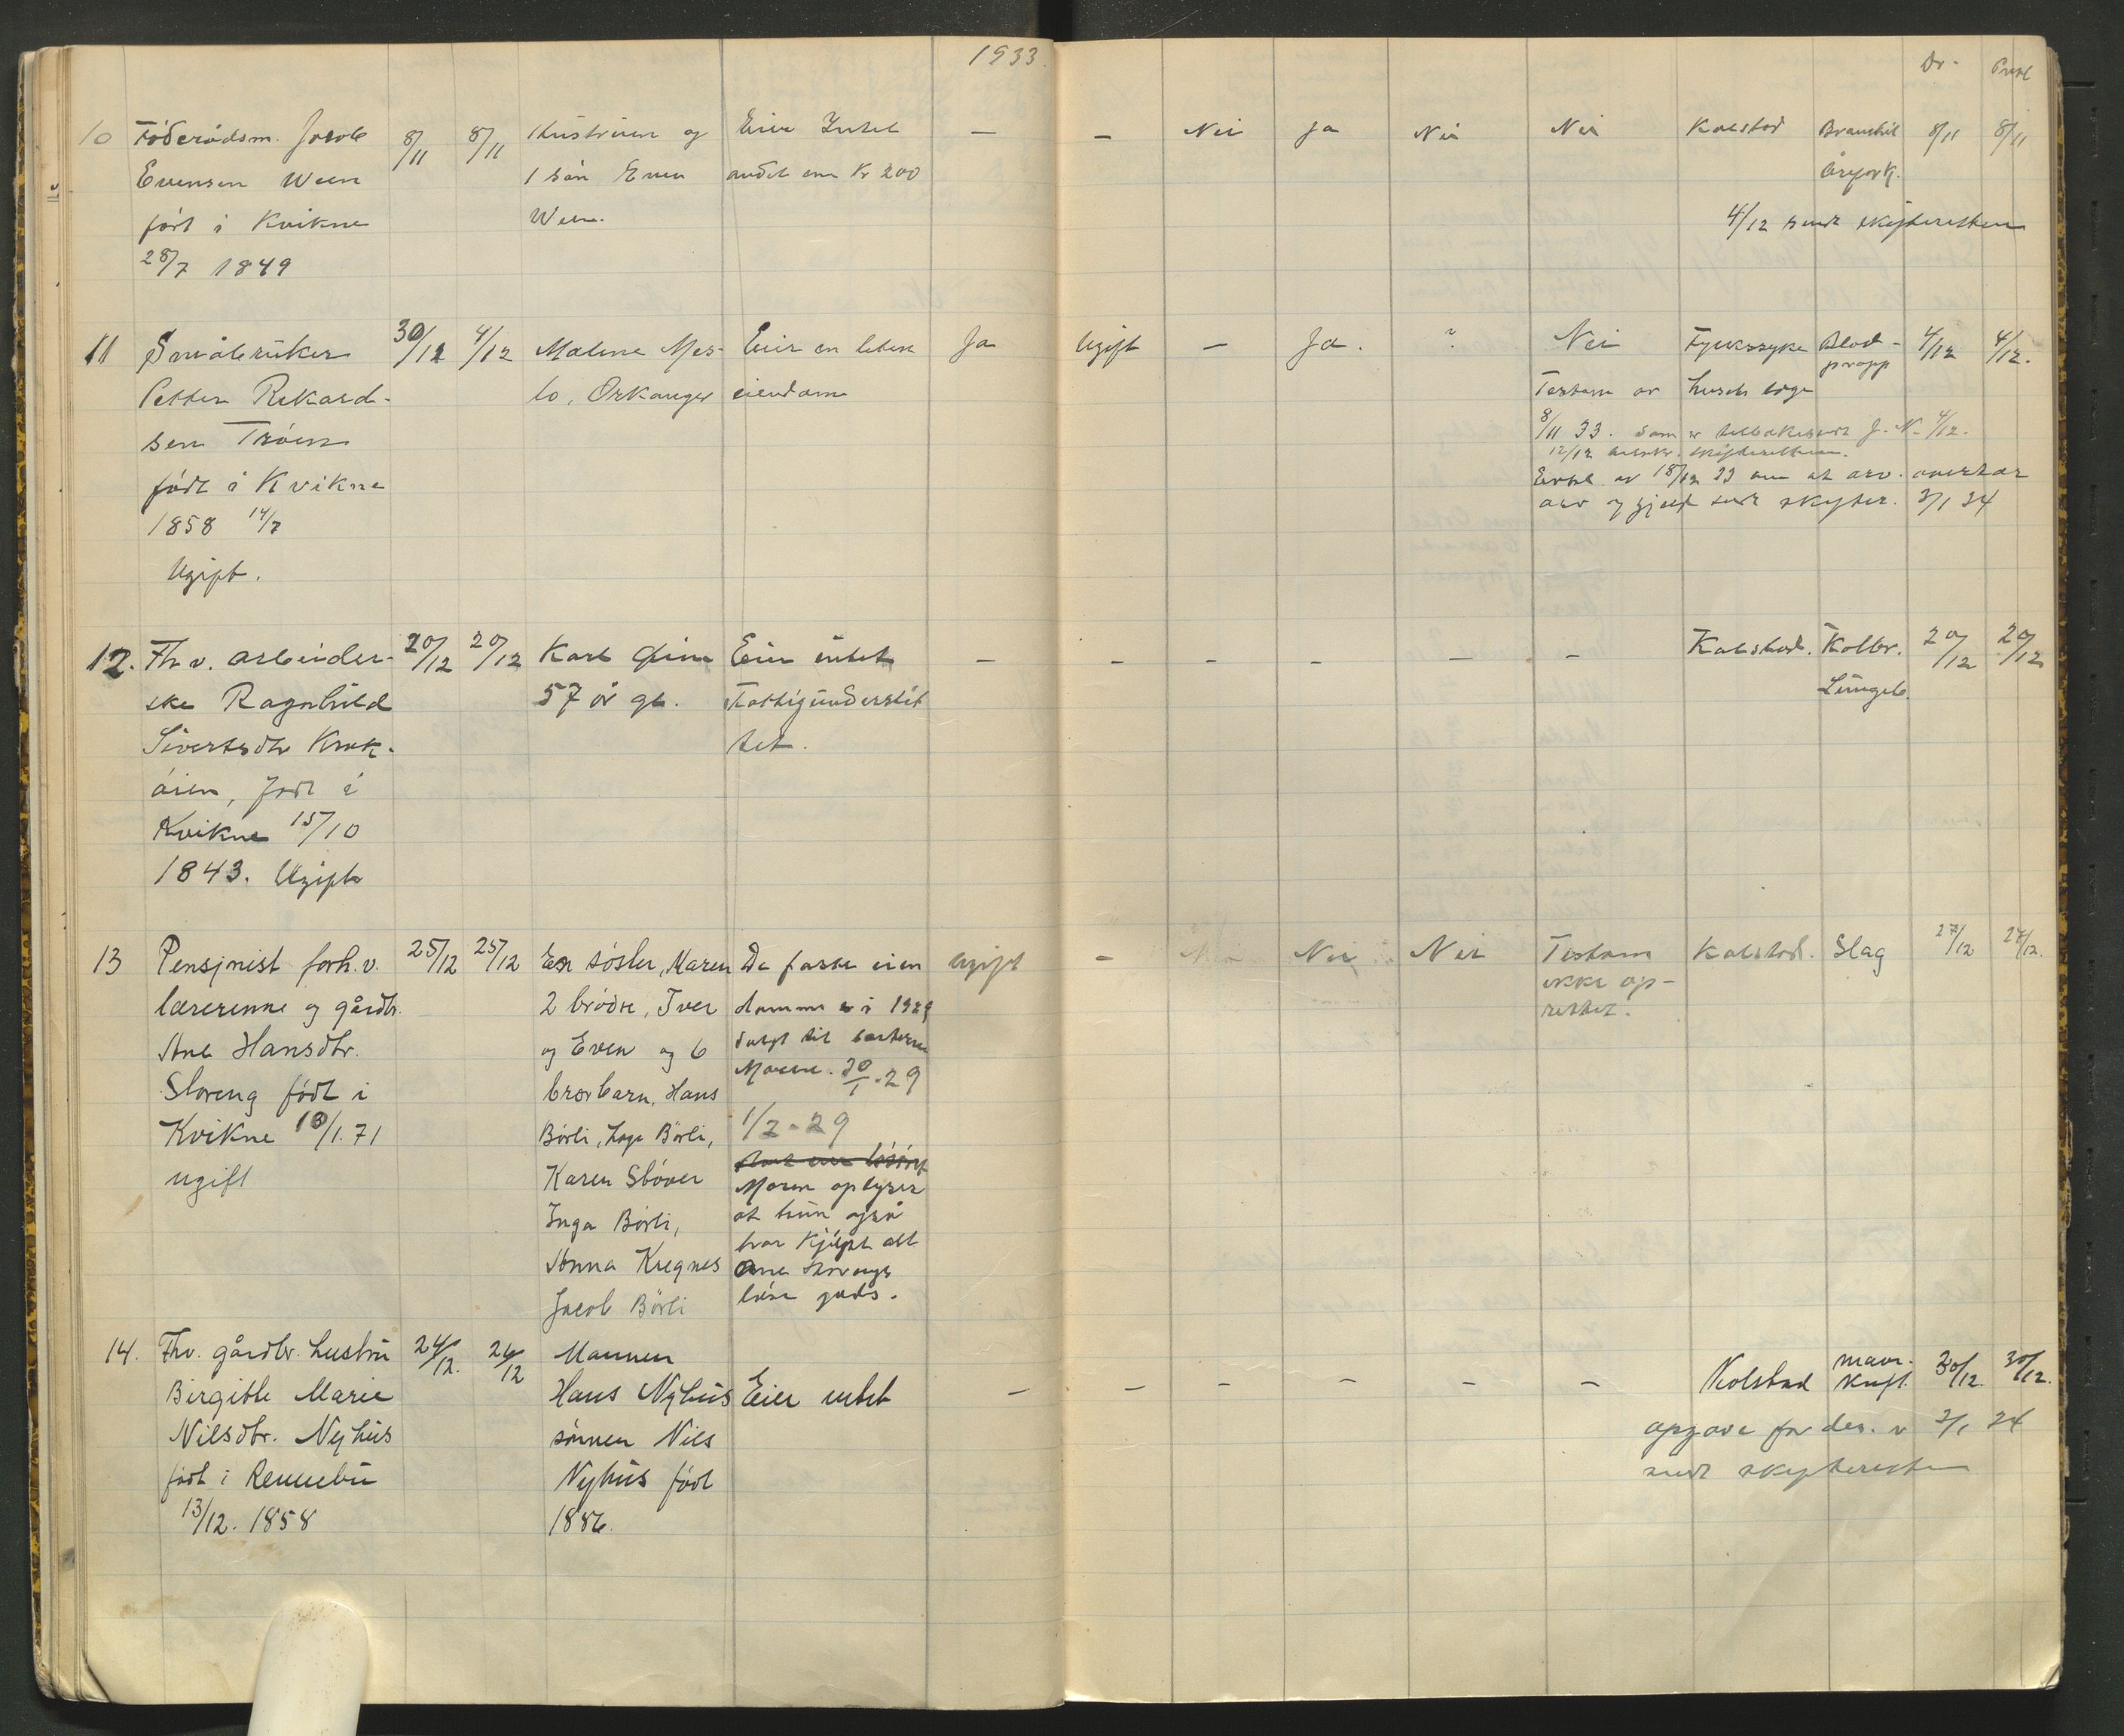 1933.
Dr-
10 Föderådsm. Jacob
Evensen Ween
född i Kvikne
28/7 1849
8/11 8/11
Hustruen og
1 sön Even
Ween.
Eier Intet
andet enn Kr 200
— — Nei Ja Nei Nei Kolstad
8/11 8/11
4/12 sendt skifteretten
11 Småbruker
Petter Rikard-
sen Tröen
födt i Kvikne
1858 14/7
Ugift.
30/12 4/12
Malene Mes-
lo, Orkanger
Eier en liten
eiendom
Ja Ugift — Ja. ? Nei
Testam av
8/11 33. som er tilbakesendt 4/12.
12/12 skifteretten.
Erkl. av 18/12 33 om at arv. overtar
arv og gjeld sendt skifter. 3/1 34
Fylkessyke
Blod-
propp
4/12 4/12.
12. Fhv. arbeider-
ske Ragnhild
Sivertsdtr Krok-
åien, födt i
Kvikne 15/10
1843. Ugift
20/12 20/12
Karl
57 år gl.
Eier intet
Fattigunderstöt
tet.
— — — — — — Kolstad. Kolbr.
Lungeb.
20/12 20/12
13 Pensjnist forh.v.
lærerinne og gårdbr.
Ane Hansdtr.
Storeng födt i
Kvikne 10/1.71
ugift
25/12 25/12
En söster, Maren
2 brödre, Iver
og Even og 6
brorbarn, Hans
Börli, Inga Börli,
Karen Stöver
Inga Börli,
Anna Kregnes
Jacob Börli
De faste eien
domme er i 1929
solgt til søsteren
Maren. 30/1-29
1/2-29
Maren oplyser
at hun også
har kjöpt alt
Ane Storengs
löse gods.
ugift — Nei Nei Nei Testam
ikke op-
rettet.
Kolstad. Slag 27/12 27/12.
14. Fhv. gårdbr. hustru
Birgitte Marie
Nilsdtr. Nyhus
födt i Rennebu
13/12. 1858
24/12. 26/12
Mannen
Hans Nyhus
sönnen Nils
Nyhus födt
1886.
Eier intet
— — — — — — Kolstad
mave-
kreft.
30/12. 30/12.
opgave for des. v 3/1 34
sendt skifteretten